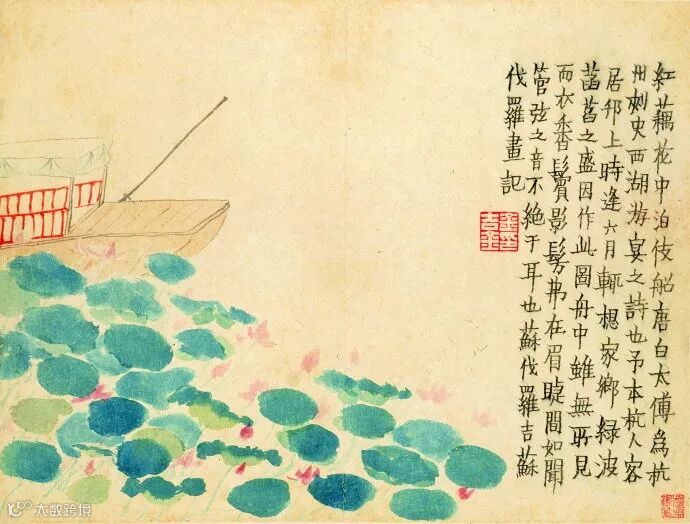 紅藕花中泊伎船唐白太傅為杭
州刺史西湖游宴之詩也予本杭人客
居邗上時逢六月輒想家鄉綠波
菡萏之盛因作此圖舟中雖無所見
而衣香鬢影髣弗在眉睫間如聞
管弦之音不絕于耳也蘇伐羅吉蘇
伐羅畫記
大数跨境